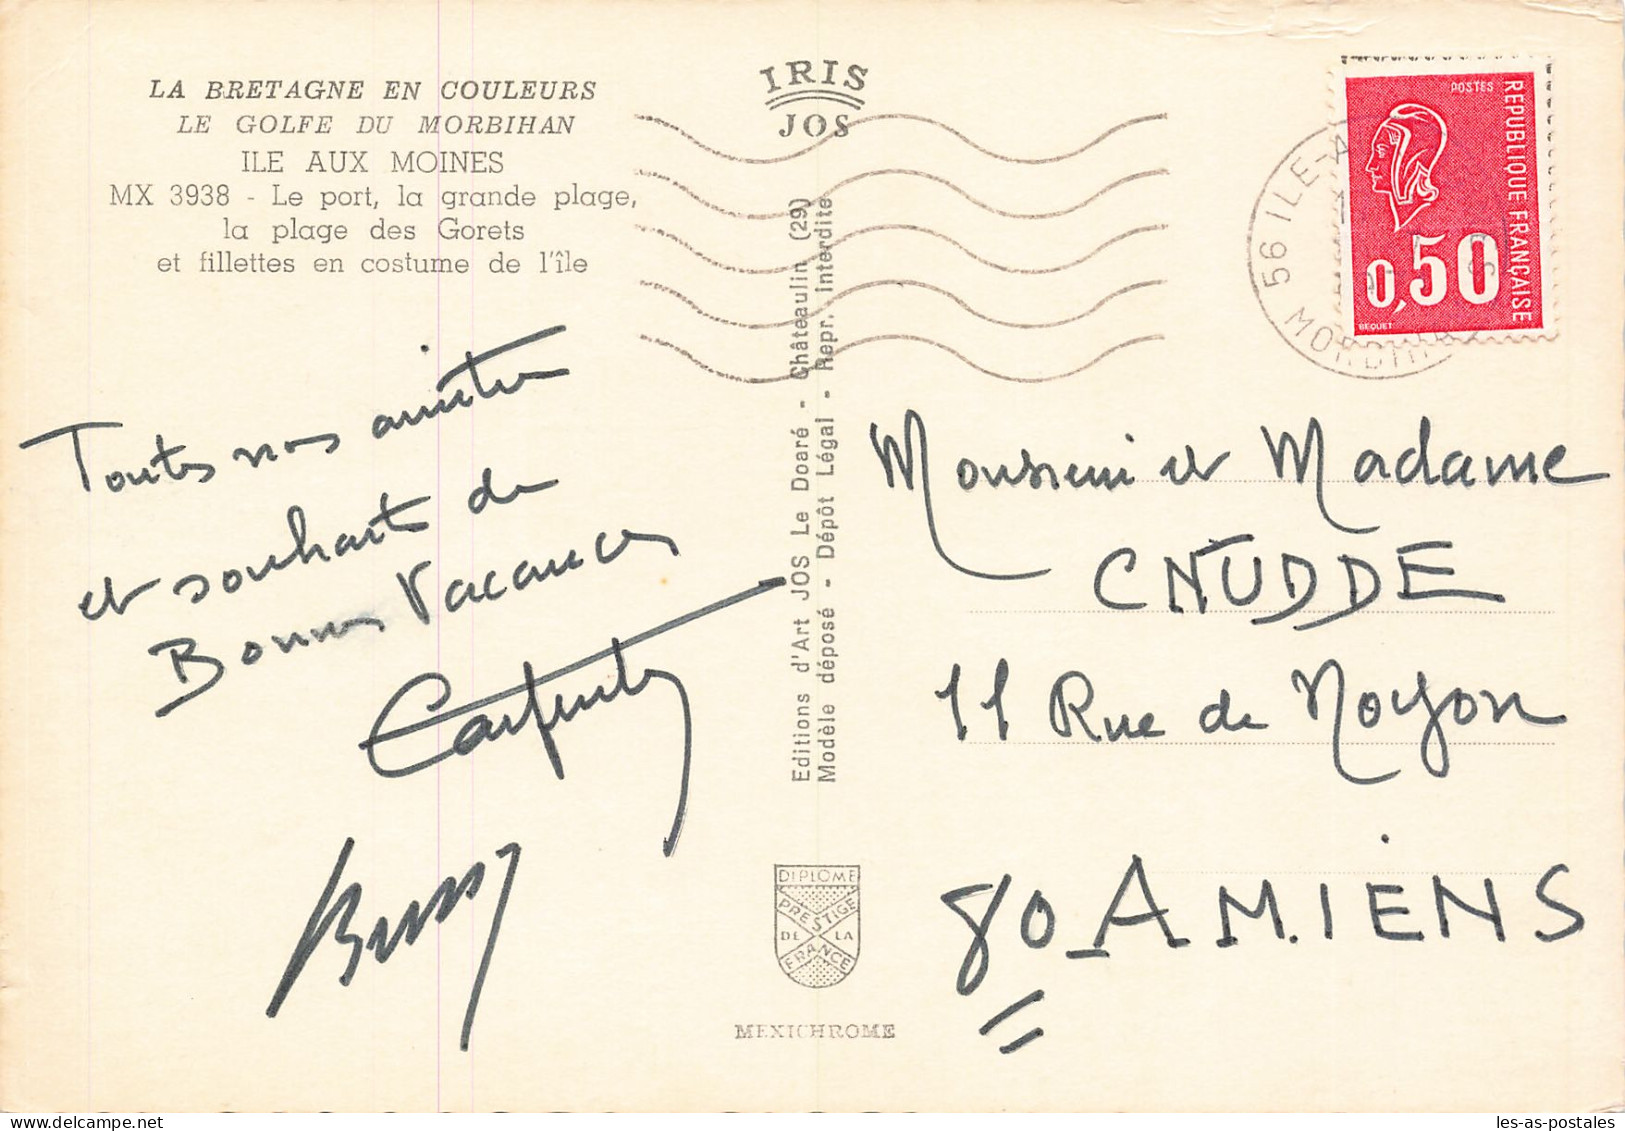 LA BRETAGNE EN COULEURS
LE GOLFE DU MORBIHAN
ILE AUX MOINES
MX 3938 - Le port, la grande plage,
la plage des Gorets
et fillettes en costume de l'île
IRIS
JOS
POSTES
REPUBLIQUE FRANÇAISE
0,50
BEQUET
56 ILE-A
MORBIHAN
Toutes nos amitiés
et souhaits de
Bonnes Vacances
Editions d'Art JOS Le Doaré - Châteaulin (29)
Modèle déposé - Dépôt Légal - Repr. Interdite
Monsieur et Madame
CNUDDE
11 Rue de Noyon
80 AMIENS
DIPLOME
PRESTIGE
DE LA
FRANCE
MEXICHROME
les-as-postales